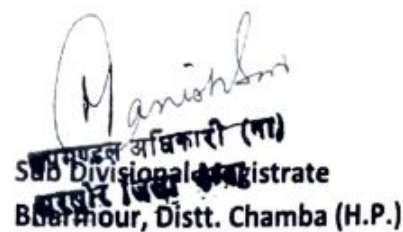 उपमण्डल अधिकारी (ना)
Sub Divisional Magistrate
भरमौर जिला चम्बा
Bharmour, Distt. Chamba (H.P.)